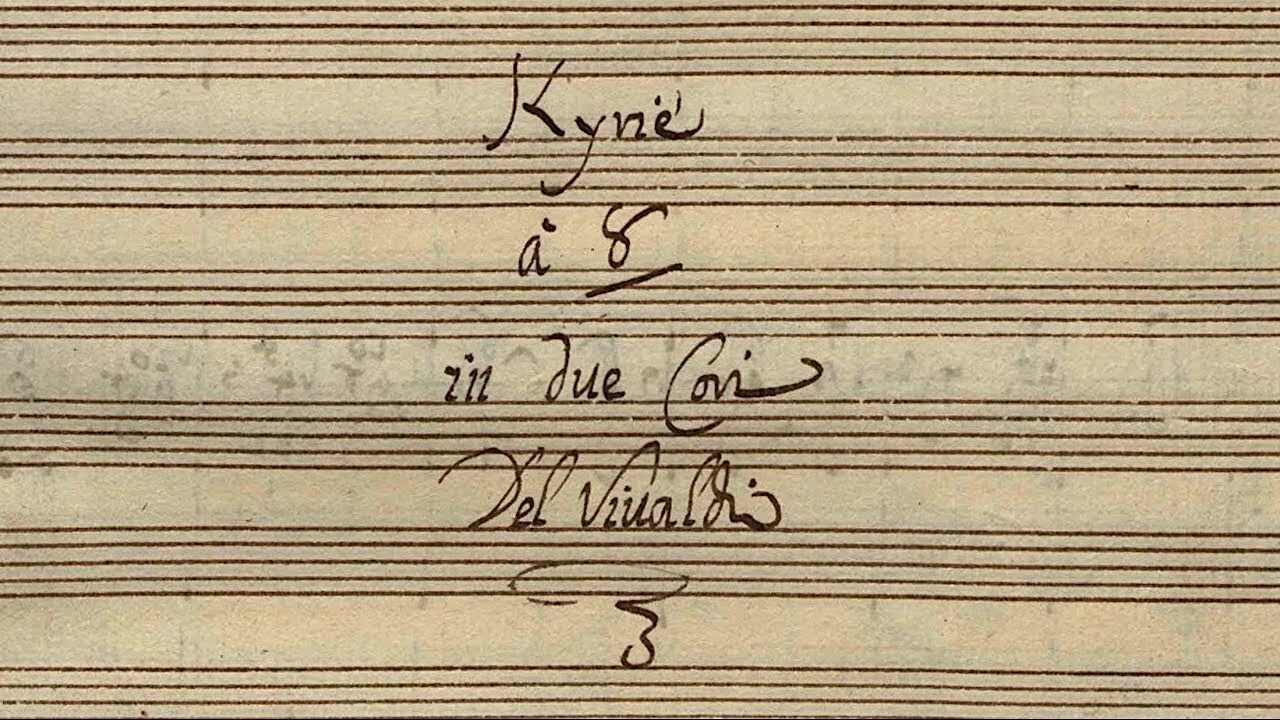 Kyrie
à 8
in due Cori
Del Viualdi